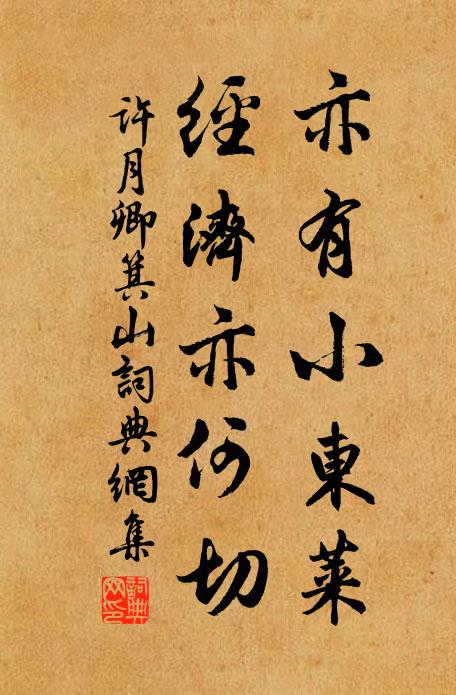 亦有小東萊
經濟亦何切
許月卿箕山詞典網集
詞典
网印